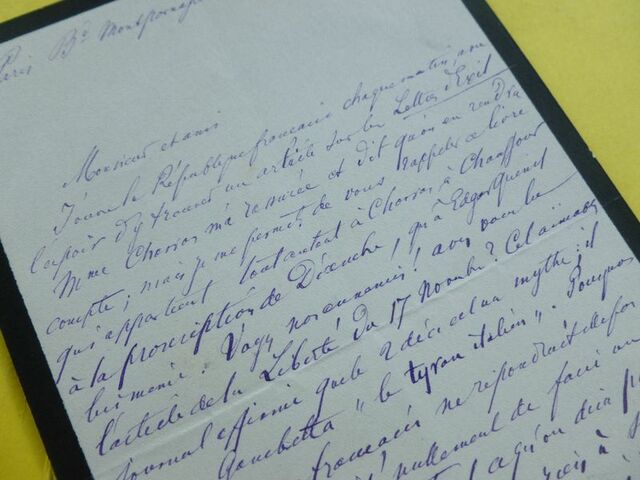 Paris Bd Montparnasse
Monsieur et ami
J'ouvre la République française chaque matin, avec
l'espoir d'y trouver un article sur les Lettres d'Exil
Mme Charras m'a rassurée et dit qu'on en rendra
compte; mais je me permets de vous rappeler ce livre
qui appartient tout autant à Charras, à Chauffour
à la proscription de Décembre, qu'à Edgar Quinet
lui même. Voyez nos ennemis! avez vous lu
l'article de la Liberté du 17 Novembre? Cet aimable
journal affirme que le 2 déc est un mythe; il
Gambetta "le tyran italien". Pourquoi
français ne répondrait de
nullement de faire un
a qu'on dira